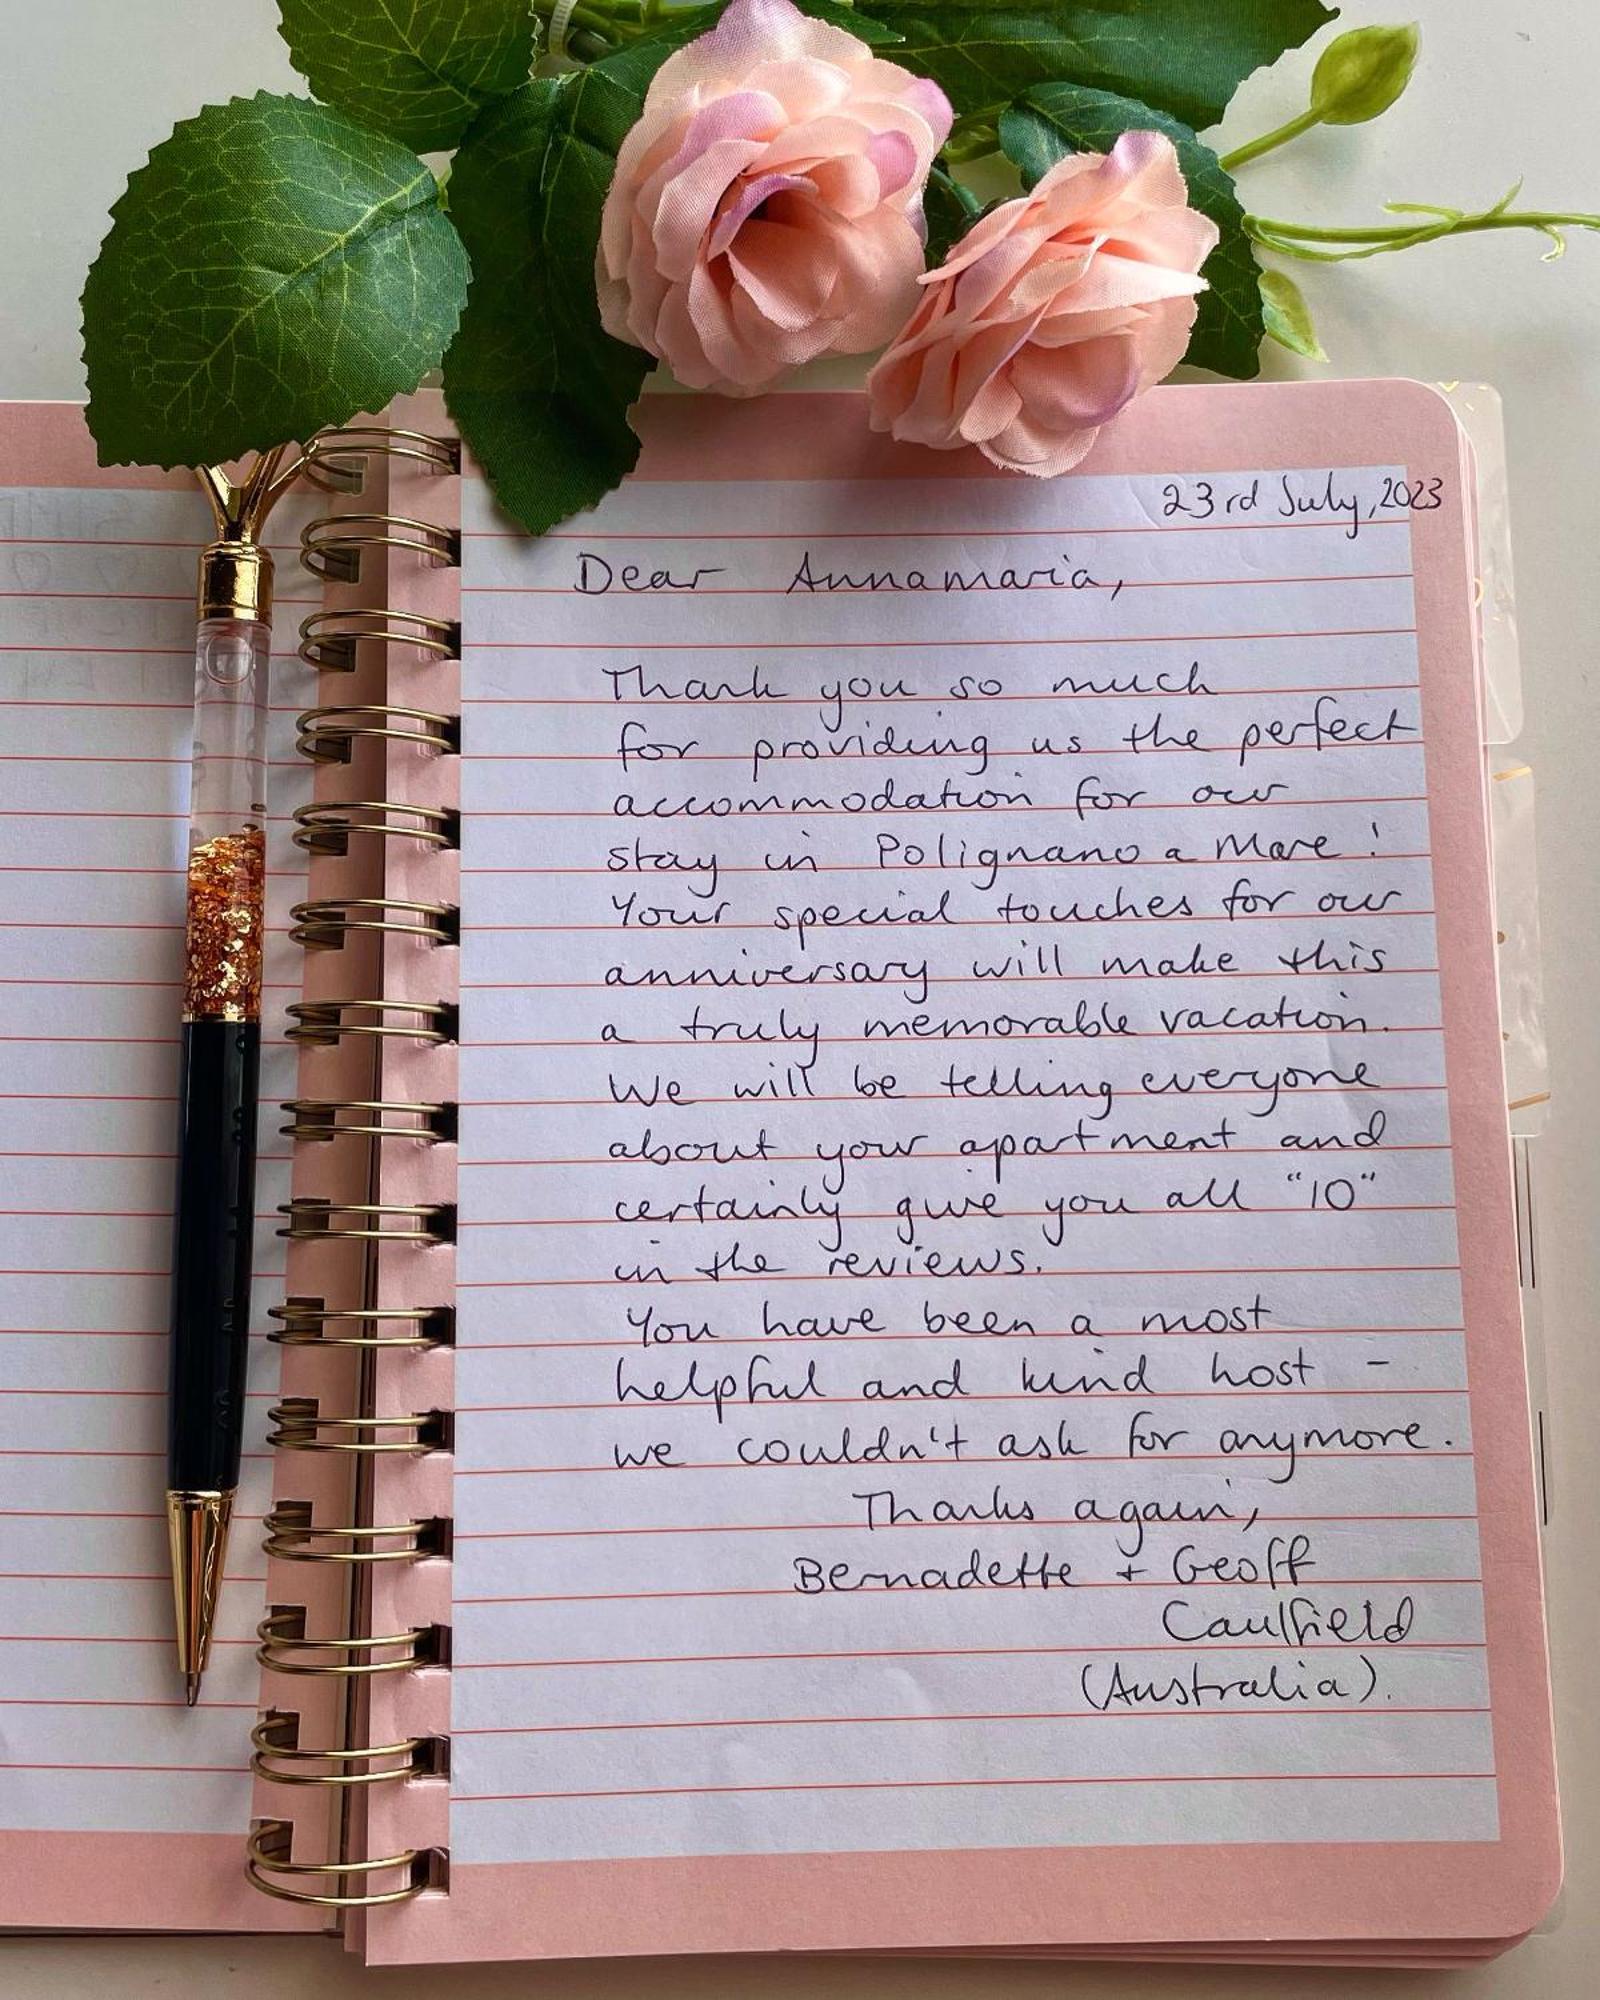 23rd July, 2023
Dear Annamaria,
Thank you so much
for providing us the perfect
accommodation for our
stay in Polignano a Mare!
Your special touches for our
anniversary will make this
a truly memorable vacation.
We will be telling everyone
about your apartment and
certainly give you all "10"
in the reviews.
You have been a most
helpful and kind host -
we couldn't ask for anymore.
Thanks again,
Bernadette + Geoff
Caulfield
(Australia).